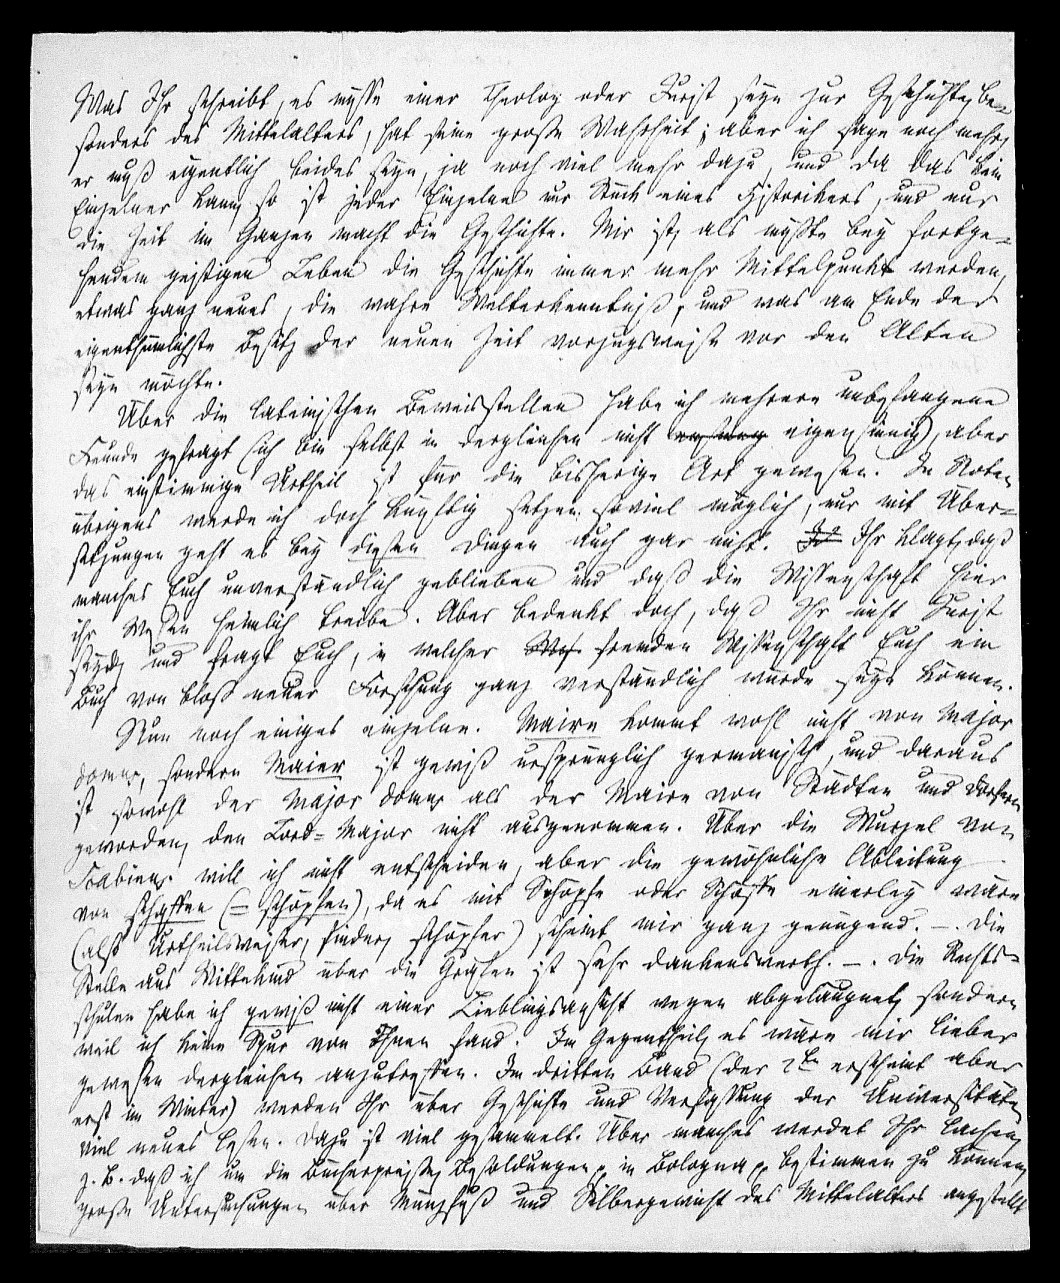 Was Ihr schreibt, es müsse einer Theolog oder Jurist seyn zur Geschichte, be-
sonders des Mittelalters, hat seine große Wahrheit; aber ich sage noch mehr,
er muß eigentlich beides seyn, ja noch viel mehr dazu und da das kein
Einzelner kann, so ist jeder Einzelne nur Stück eines Historikers, und nur
die Zeit im Ganzen macht die Geschichte. Mir ists, als müßte bey fortge-
hendem geistigen Leben die Geschichte immer mehr Mittelpunkt werden,
etwas ganz neues, die wahre Welterkenntniß, und was am Ende der
eigenthümlichste Besitz der neuen Zeit vorzugsweise vor den Alten
seyn möchte.
Über die lateinischen Beweisstellen habe ich mehrere unbefangene
Freunde gefragt (ich bin selbst in dergleichen nicht eigensinnig), aber
das einstimmige Urtheil ist für die bisherige Art gewesen. In Noten
übrigens werde ich doch künftig setzen soviel möglich, nur mit Über-
setzungen geht es bey diesen Dingen auch gar nicht. Ihr klagt, daß
manches Euch unverständlich geblieben und daß die Wissenschaft hier
ihr Wesen heimlich treibe. Aber bedenkt doch, daß Ihr nicht Jurist
seyd, und fragt Euch, in welcher fremden Wissenschaft Euch ein
Buch von bloß neuer Forschung ganz verständlich würde seyn können.
Nun noch einiges einzelne. Maire kommt wohl nicht von Major
domus, sondern Maier ist gewiß ursprünglich germanisch, und daraus
ist sowohl der Major domus als der Maire von Städten und Dörfern
geworden, den Lord-Major nicht ausgenommen. Über die Wurzel von
Scabinus will ich nicht entscheiden, aber die gewöhnliche Ableitung
von schaffen (= schöpfen), da es mit Schöpfe oder Schöffe einerley wäre
(also Urtheilsweiser, finder, schöpfer) scheint mir ganz genügend. —. Die
Stelle aus Wittekind über die Grafen ist sehr dankenswerth. —. Die Rechts-
schulen habe ich gewiß nicht einer Lieblingsansicht wegen abgeläugnet, sondern
weil ich keine Spur von Ihnen fand. Im Gegentheil, es wäre mir lieber
gewesen dergleichen anzutreffen. Im dritten Band (der 2te erscheint aber
erst im Winter) werden Ihr über Geschichte und Verfassung der Universitäten
viel neues lesen. Dazu ist viel gesammelt. Über manches werdet Ihr lachen,
z. B. daß ich um die Bücherpreise, Besoldungen, in Bologna bestimmen zu können,
große Untersuchungen über Münzfuß und Silbergewicht des Mittelalters angestellt